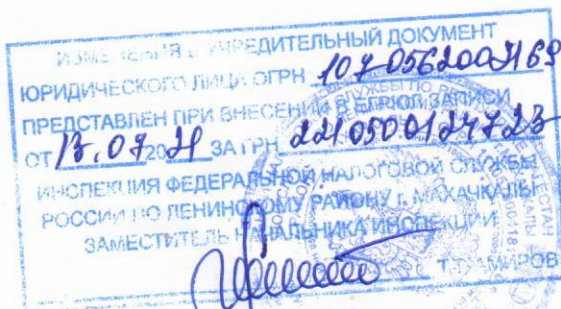 ИЗМЕНЕНИЯ В УЧРЕДИТЕЛЬНЫЙ ДОКУМЕНТ
ЮРИДИЧЕСКОГО ЛИЦА ОГРН 1070562002169
ПРЕДСТАВЛЕН ПРИ ВНЕСЕНИИ В ЕГРЮЛ ЗАПИСИ
ОТ 13.07 2021 ЗА ГРН 2210500124723
ИНСПЕКЦИЯ ФЕДЕРАЛЬНОЙ НАЛОГОВОЙ СЛУЖБЫ
РОССИИ ПО ЛЕНИНСКОМУ РАЙОНУ г. МАХАЧКАЛЫ
ЗАМЕСТИТЕЛЬ НАЧАЛЬНИКА ИНСПЕКЦИИ